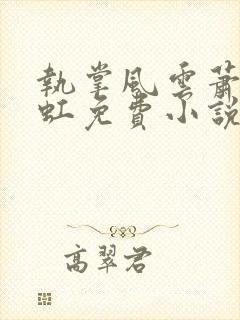 執掌風雲蕭
虹免費小說
高翠君